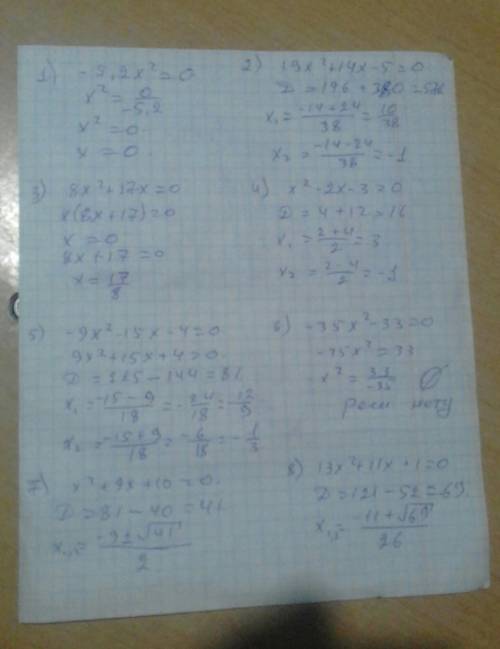 1) -5,2x²=0
x²=0/-5,2
x²=0
x=0.
2) 19x²+14x-5=0
D=196+380=576
x₁=(-14+24)/38=10/38
x₂=(-14-24)/38=-1
3) 8x²+17x=0
x(8x+17)=0
x=0
8x+17=0
x=17/8
4) x²-2x-3=0
D=4+12=16
x₁=(2+4)/2=3
x₂=(2-4)/2=-1
5) -9x²-15x-4=0
9x²+15x+4=0.
D=225-144=81
x₁=(-15-9)/18=-24/18=-12/9
x₂=(-15+9)/18=-6/18=-1/3
6) -35x²-33=0
-35x²=33
x²=33/-35 ∅
7) x²+9x+10=0.
D=81-40=41
x₁,₂=(-9±√41)/2
8) 13x²+11x+1=0
D=121-52=69.
x₁,₂=(-11±√69)/26